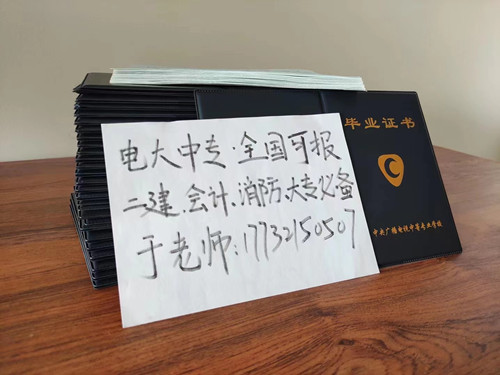 电大中专·全国可报
二建、会计、消防、大专必备
于老师：17732150507
毕业证书
中央广播电视中等专业学校